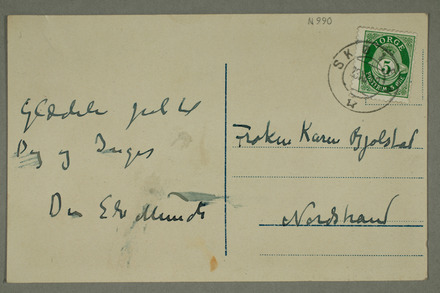 N 990
NORGE
5
SK
Glædelig jul til
Dig og Inger
Din Edv Munch
Frøken Karen Bjølstad
Nordstrand